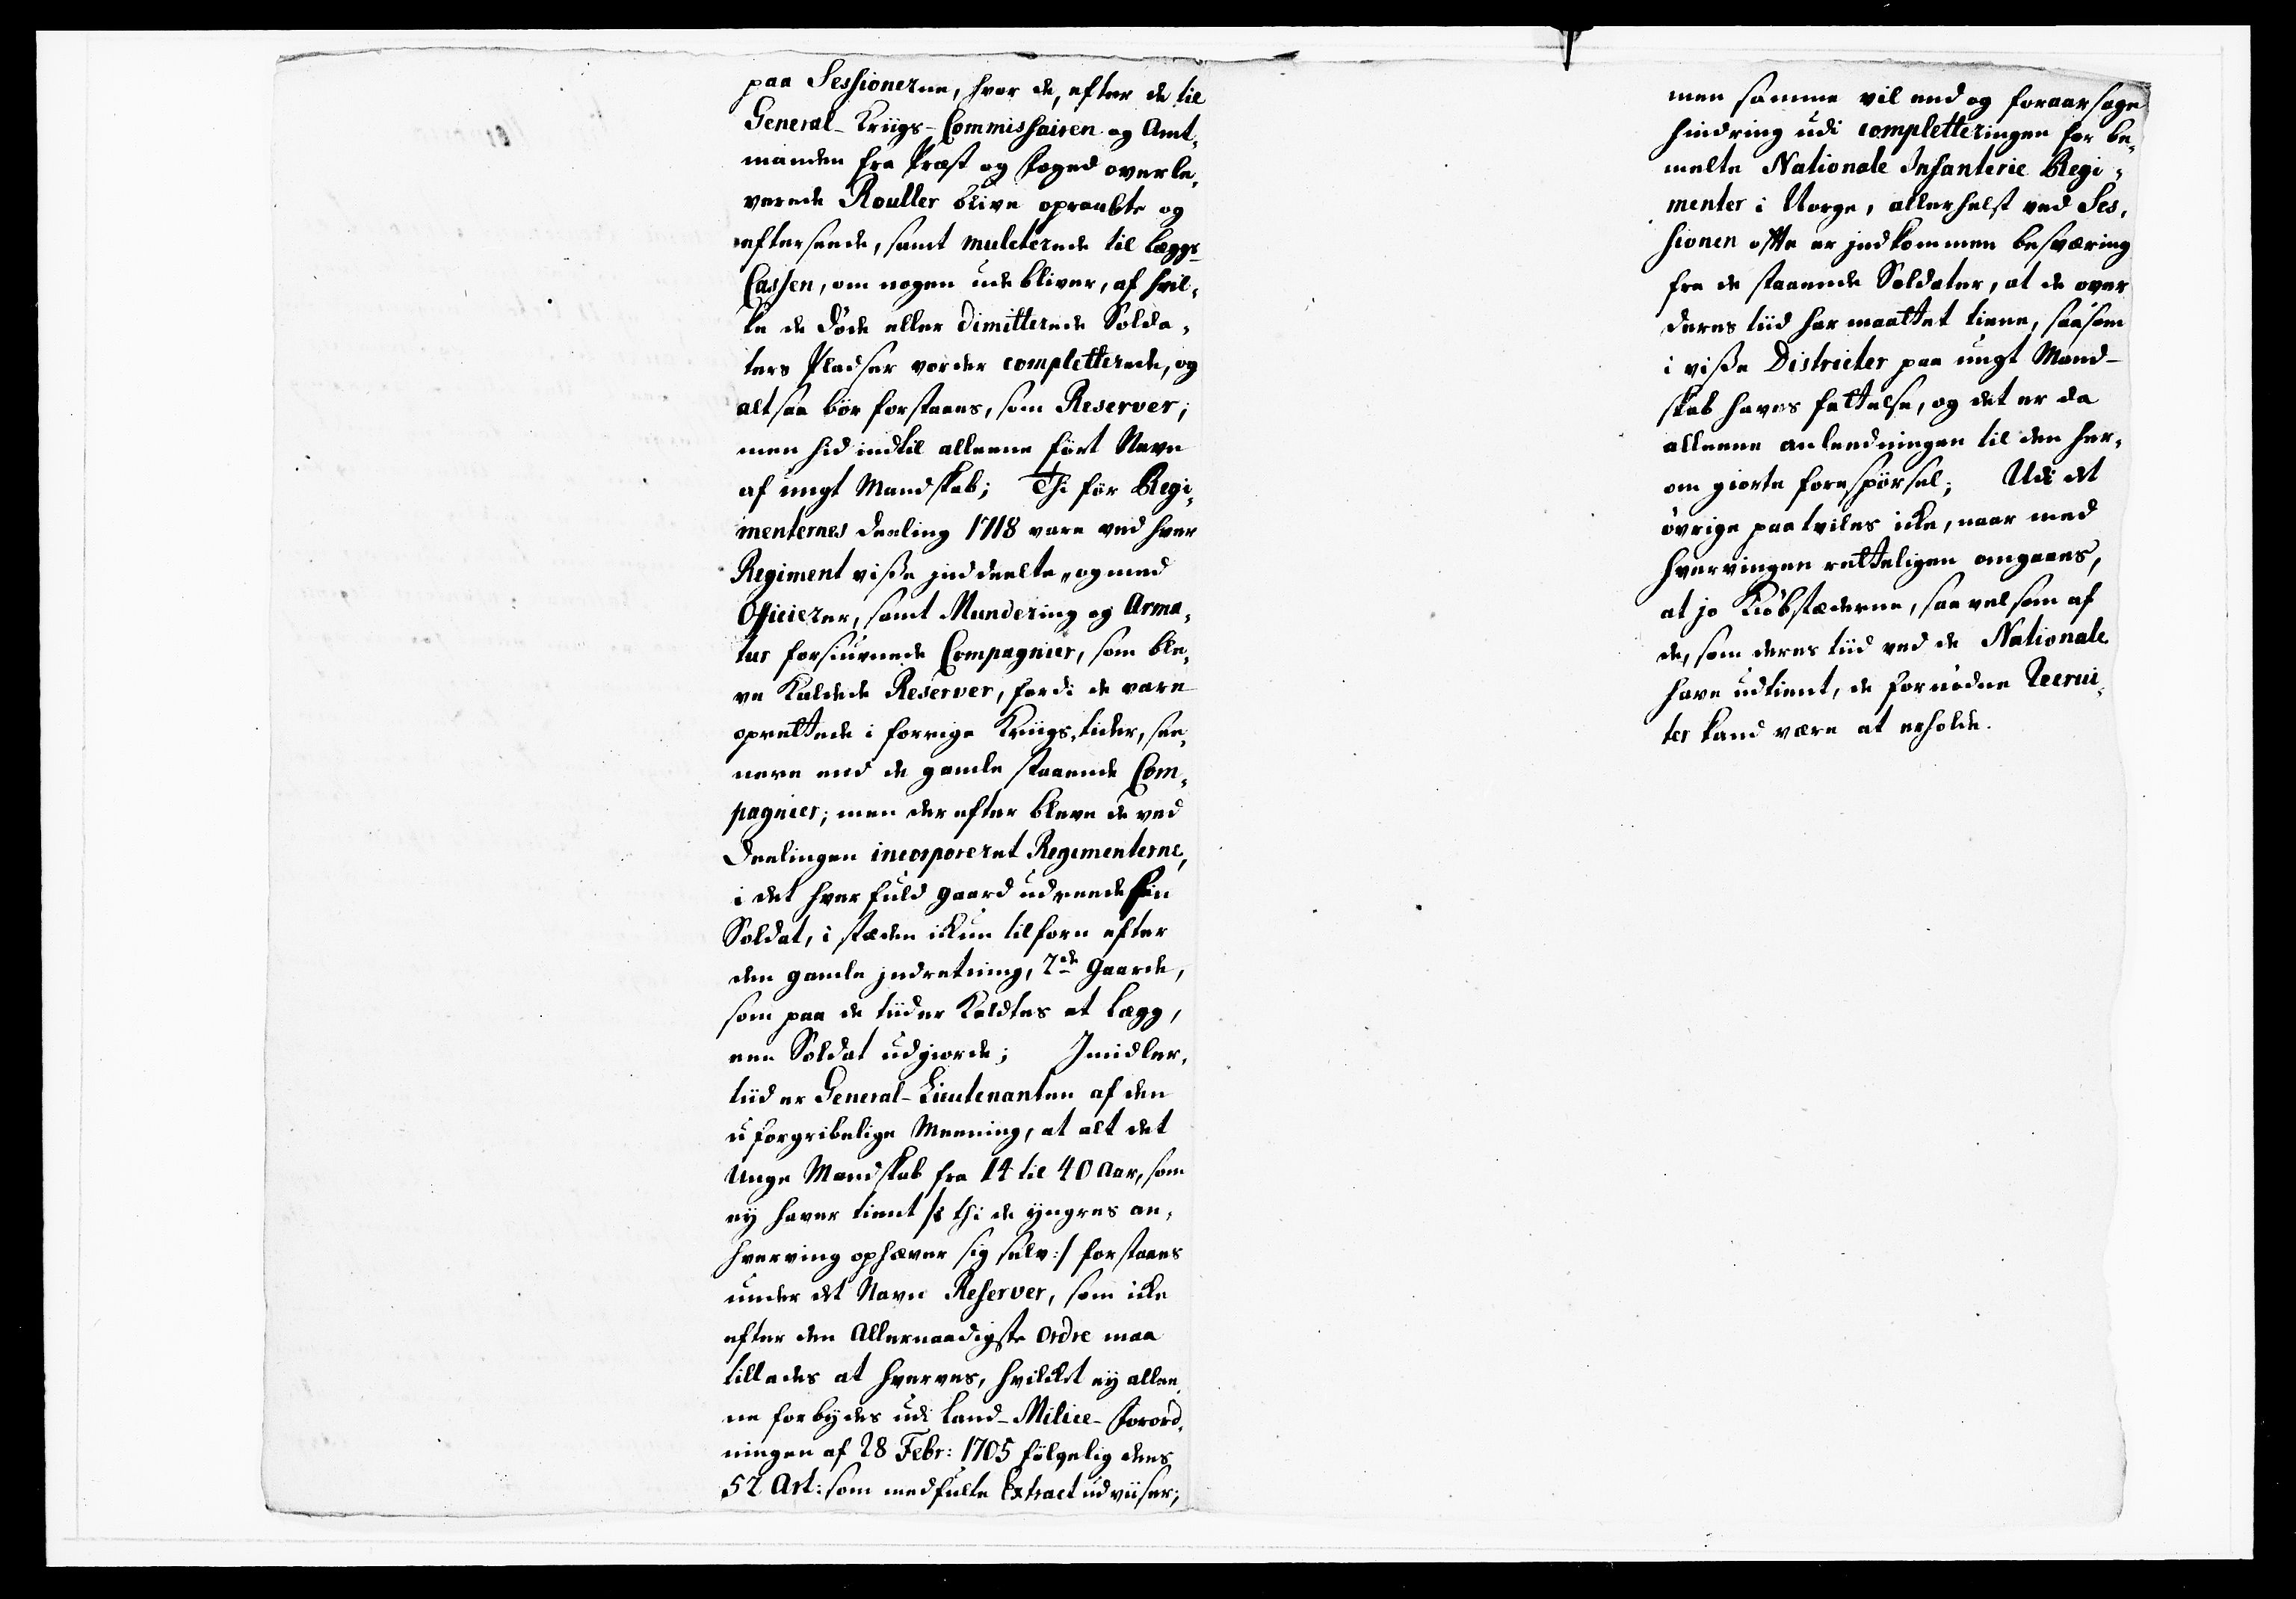 paa Sessionerne, hvor de, efter de til
General-Kriigs-Commissairen og Amt,
manden fra Præst og Foged overle,
verede Rouller blive opraabte og
efterseede, samt mulcterede til Lægs-
Cassen, om nogen udebliver, af hvil,
ke de döde eller dimitterede Solda,
ters Pladser vorder completterede, og
altsaa bör forstaaes, som Reserver;
men hid indtil alleene fört Navn
af ungt Mandskab; Thi för Regi,
menternes deeling 1718 vare ved hver
Regiment visse jnddeelte, og med
Officierer, samt Mundering og Arma,
tur forsiunede Compagnier, som ble,
ve kaldede Reserver, fordi de vare
oprettede i forrige Kriigs,tider, see,
nere end de gamle staaende Com,
pagnier; men der efter bleve de ved
Deelingen incorporeret Regimenterne,
i det hver fuld gaard udreede sin
Soldat, i stæden ickun tilforn efter
den gamle jndretning, 2de Gaarde,
som paa de tiider kaldtes et Lægg,
een Soldat udgiorde; Jmidler,
tiid er General-Lieutenanten af den
uforgribelige Meening, at alt det
Unge Mandskab fra 14 til 40 Aar, som
ey haver tient /: thi de yngres an,
hverving ophæver sig selv :/ forstaaes
under det Navn Reserver, som icke
efter den Allernaadigste Ordre maa
tillades at hverves, hvilcket ey allee,
ne forbydes udi Land-Milice-Forord,
ningen af 28 Febr: 1705 fölgelig dens
52 Art: som medfulte Extract udviiser;
men samme vil end og foraarsage
hindring udi completteringen for be,
melte Nationale Infanterie Regi,
menter i Norge, allerhelst ved Ses,
sionen offte er jndkommen besværing
fra de staaende Soldater, at de over
deres tiid har maattet tiene, saasom
i visse Districter paa ungt Mand-
skab haves fattelse, og det er da
alleene anleedningen til den her,
om giorte forespörsel; Udi det
övrige paatviles icke, naar med
hvervingen retteligen omgaaes,
at jo Kiöbstæderne, saavelsom af
de, som deres tiid ved de Nationale
have udtient, de fornödne Recrui,
ter kand være at erholde.